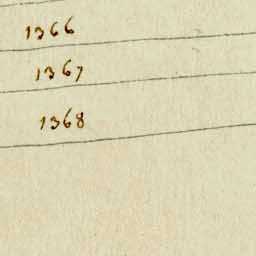 1366
1367
1368